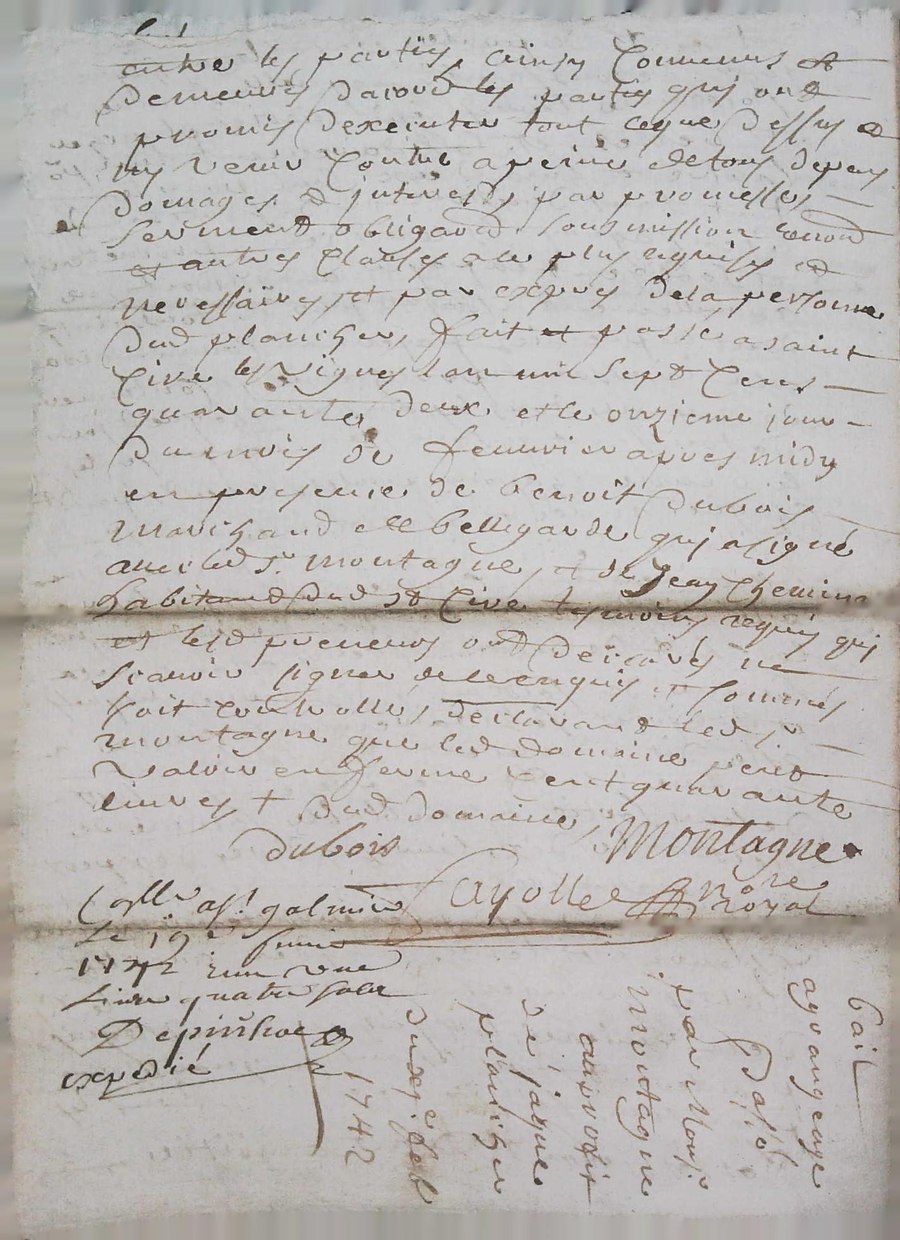 entre les parties, ainsy Convenus et
demeurés dacord les parties qui ont
promis dexecuter tout ceque dessus et
ny venir Contre apeine detous depens
domages et interests, par promesses,
serment obligaon soumission renon
et autres Clauses ace plus requises et
necessaires, et par expres dela personne
dud plancher, fait et passé a saint
Cire les vignes lan mil sept Cens
quarante deux et le onzieme jour
du mois de feuvrier apres midy
en presence de benoit dubois
marchand de bellegarde qui a signé
avec led sr montagne, et de Jean Chemin
habitand dud st Cire temoins requis qui
et lesd preneurs ont declarés ne
scavoir signer de ce enquis et sommés
soit controllé, declarant led sr
montagne que led domaine peut
valoir en ferme cent quarante
livres + dud domaine,
dubois Montagne
Cayolle nore royal
Collé a st galmier
Le 19e
1742 une
livre quatre sols
Depinhac
expedié
bail
agrangeage
Passé
par Monsr
montagne
au profit
de jaque
plancher
du xie feb
1742